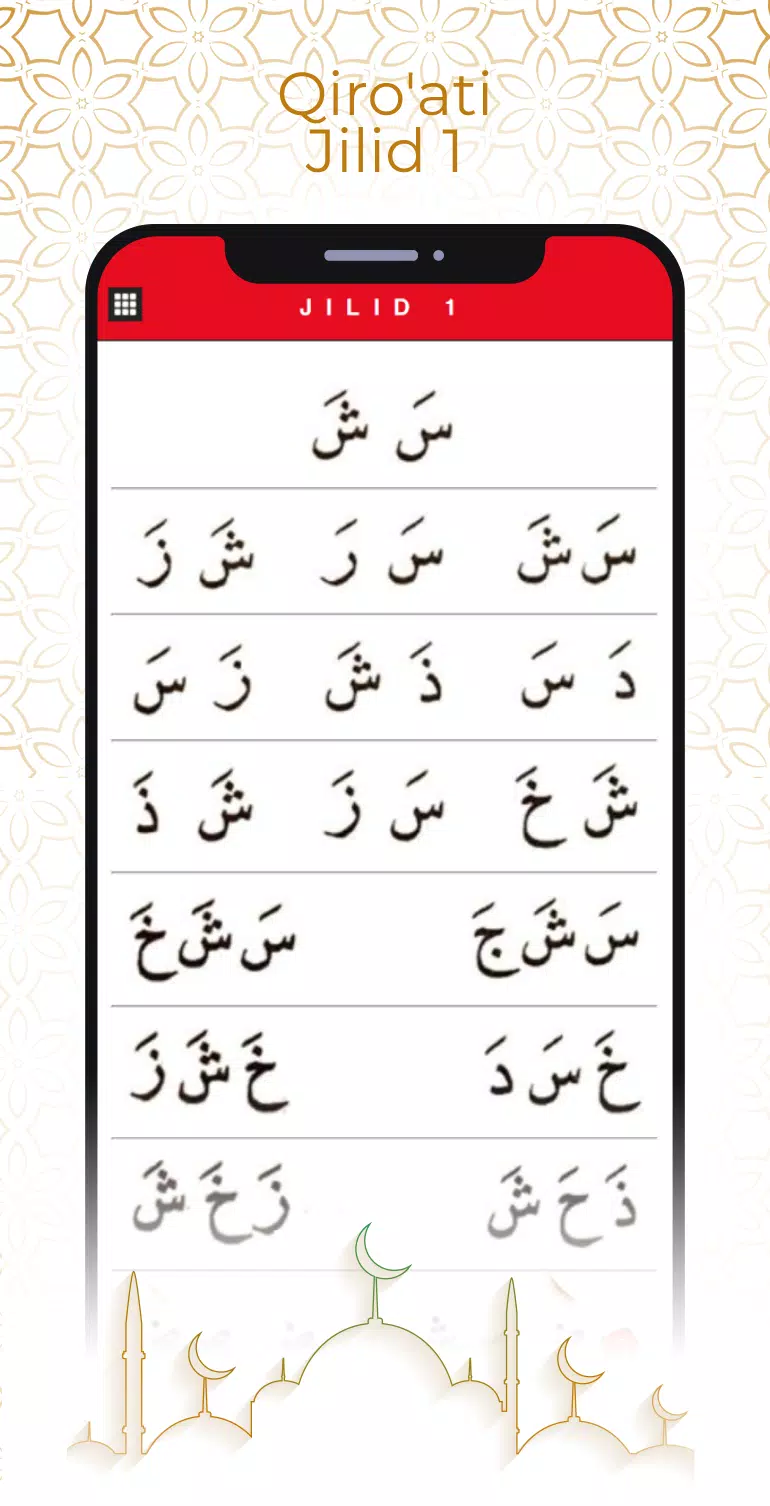 Qiro'ati
Jilid 1
JILID 1
سَ شَ
سَ شَ سَ رَ شَ زَ
دَ سَ ذَ شَ زَ سَ
شَ خَ سَ زَ شَ ذَ
سَ شَ جَ سَ شَ خَ
خَ سَ دَ خَ شَ زَ
ذَ حَ شَ زَ خَ شَ